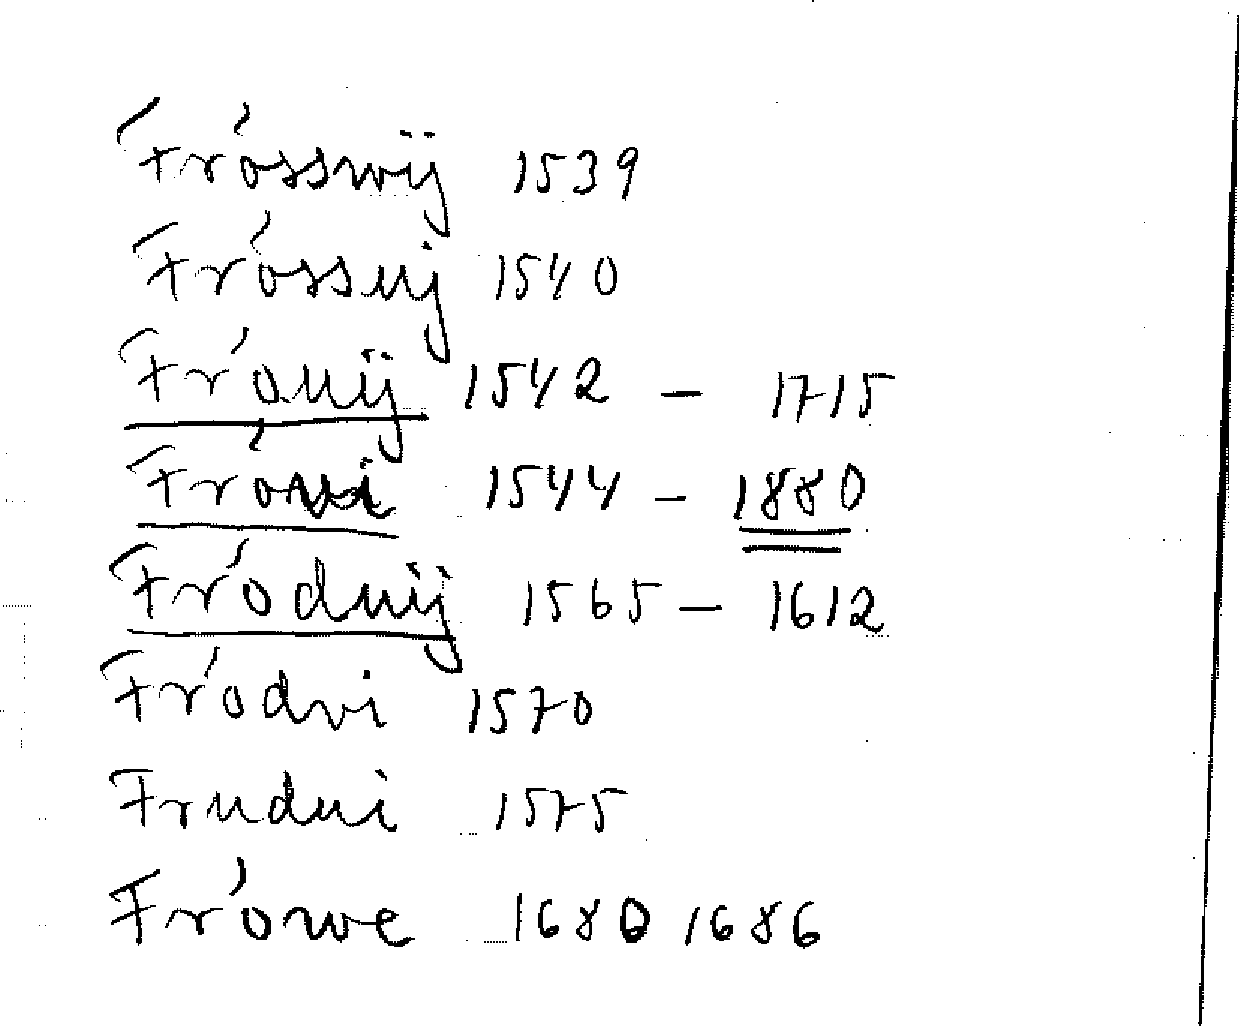 Frósswij 1539
Fróssuj 1540
Fróuij 1542 – 1715
Frówi 1544 – 1880
Fróduij 1565 – 1612
Fródvi 1570
Frudui 1575
Frówe 1680 1686